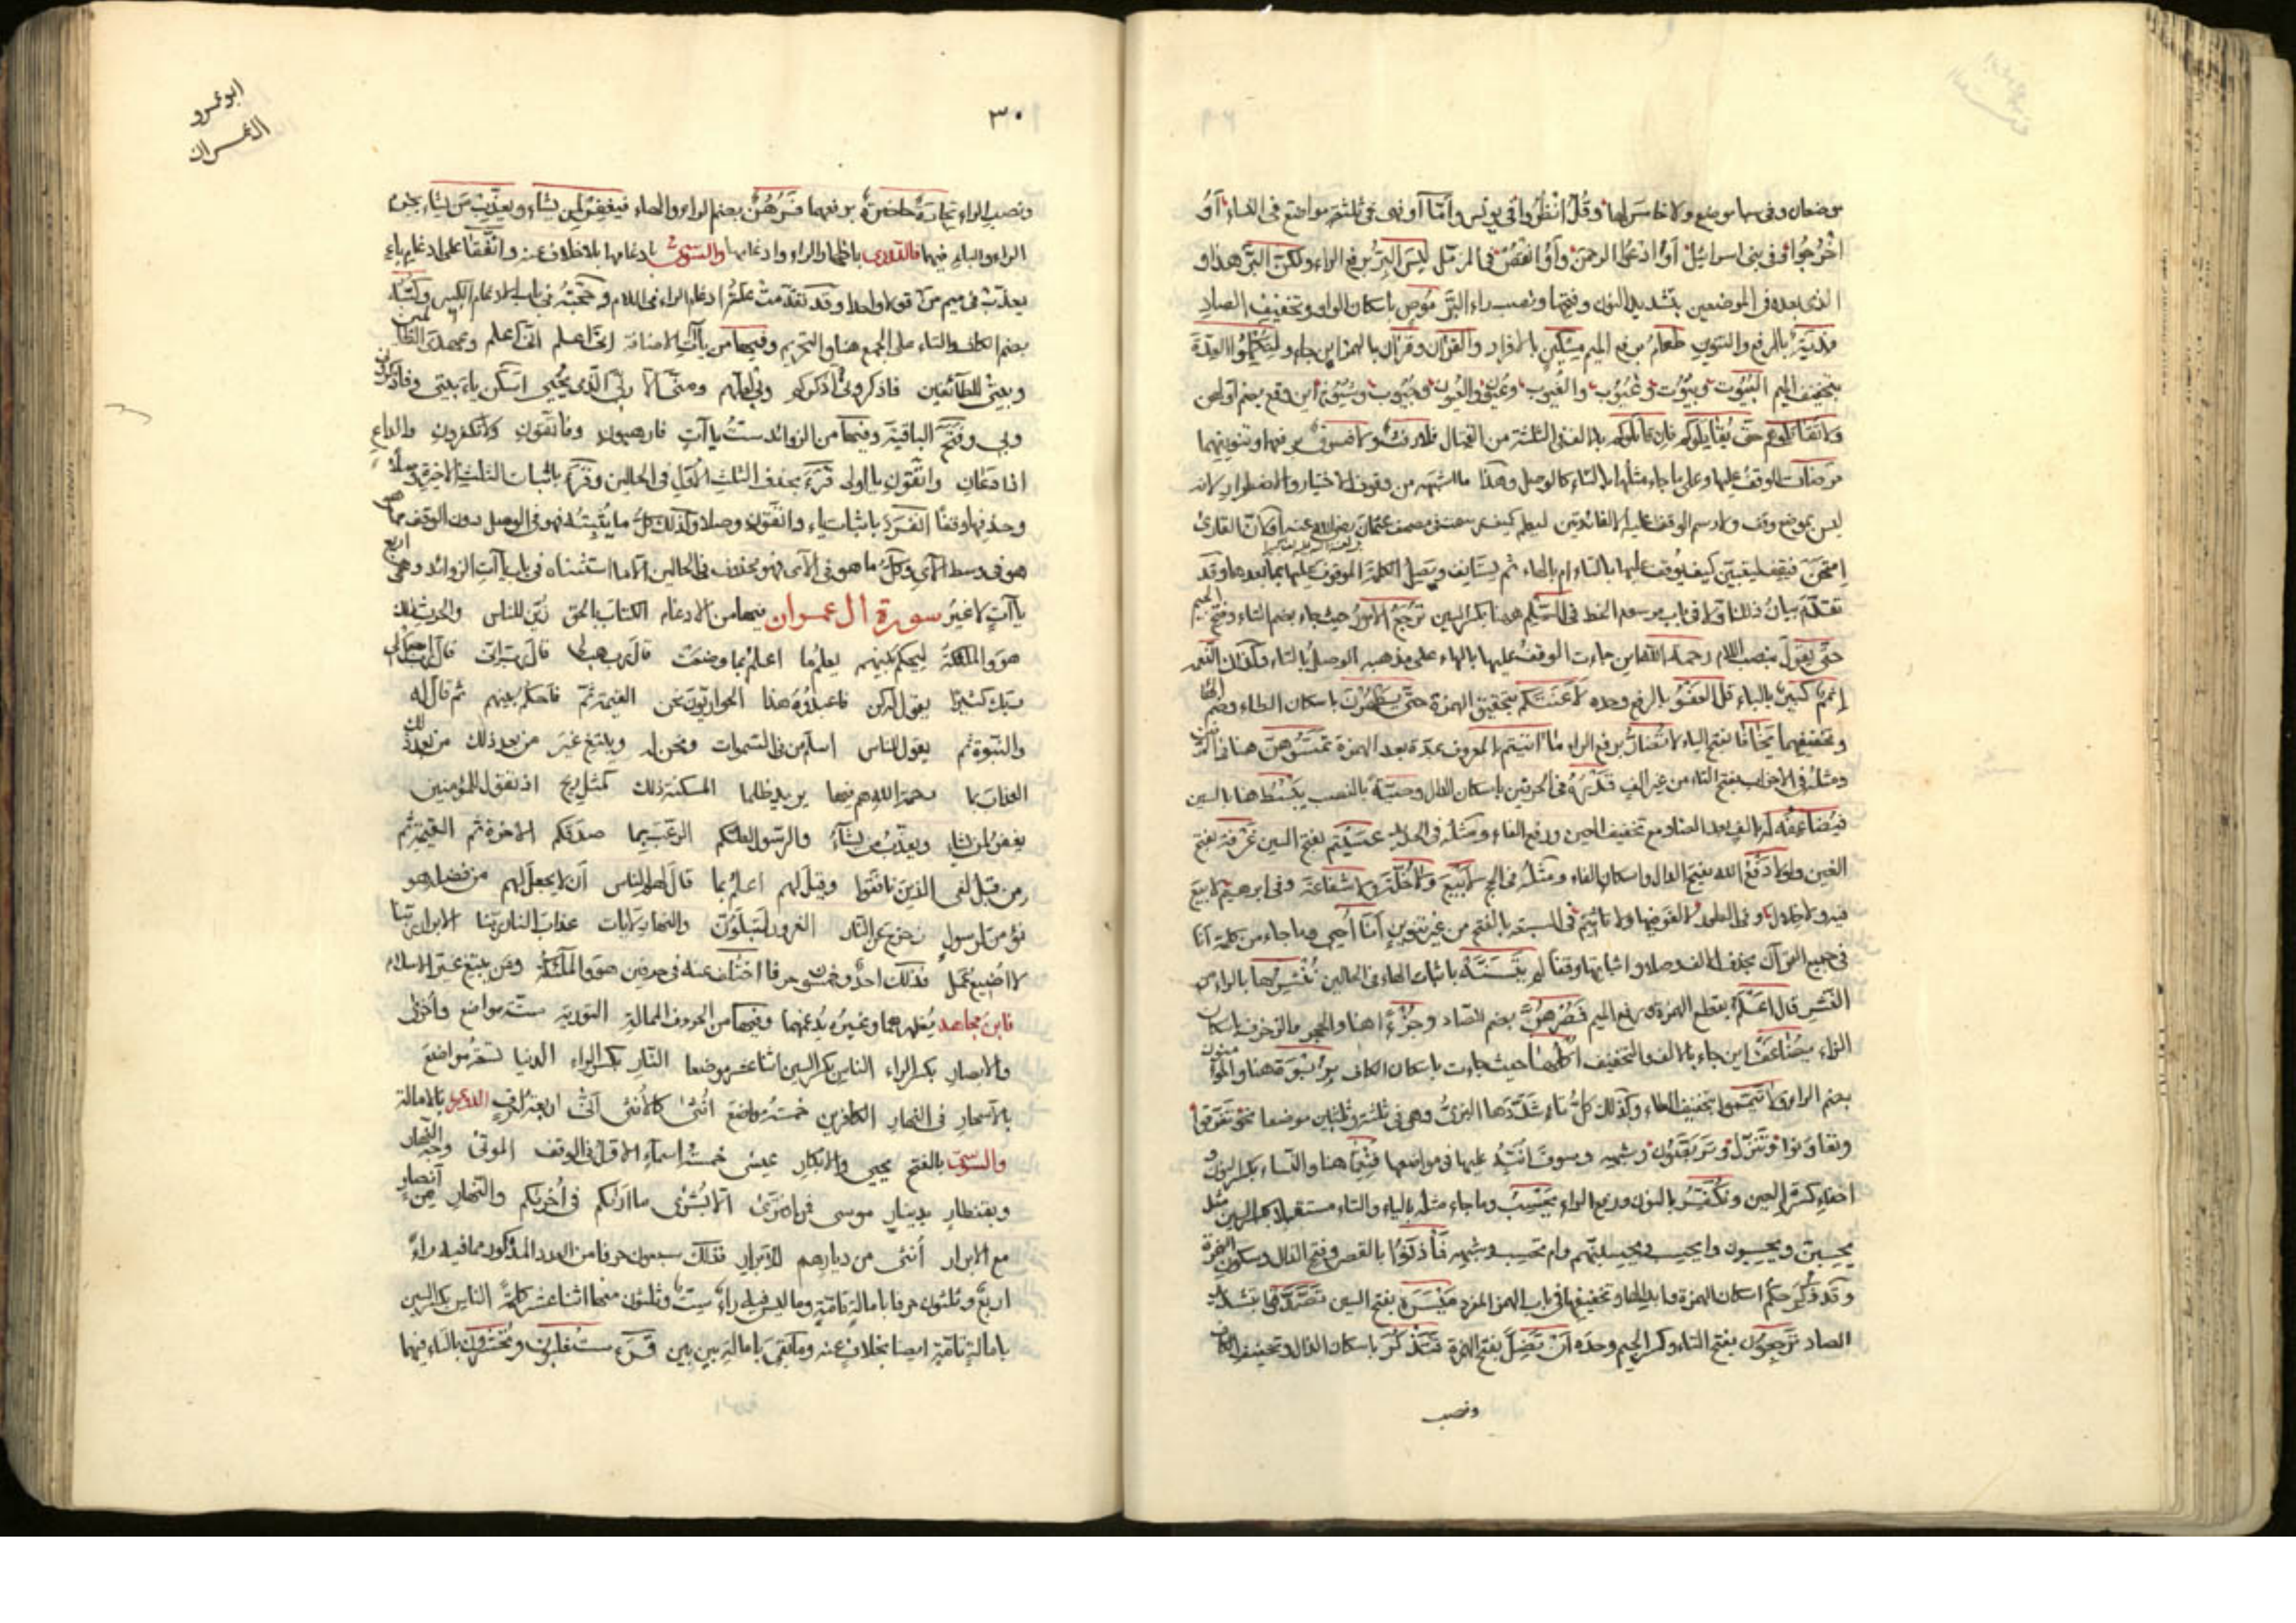 موضعان وفى سبا موضع ولا خامس لها وقل انظروا فى يونس واما او فهى فى ثلثة مواضع فى النساء او
اخرجوا وفى بنى اسرائيل او ادعوا الرحمن وأو انقص فى المزمل ليس البر برفع الراء ولكن البر هذا و
الذى بعده فى الموضعين بتشديد النون وفتحها ونصب راء البر موص باسكان الواو وتخفيف الصاد
فدية بالرفع والتنوين طعام برفع الميم مسكين بالافراد والقران وقران بالهمز اين جاء ولتكملوا العدة
بتخفيف الميم البيوت وبيوت وغيوب والغيوب وعيون والعيون وجيوب وشيوخا اين وقع بضم اولهن
ولا تقاتلوهم حتى يقاتلوكم فان قاتلوكم بالالف فى الثلثة من القتال فلا رفث ولا فسوق برفعهما وتنوينهما
مرضات الوقف عليها وعلى ما جاء مثلها بالتاء كالوصل وهذا ما اشبهه من وقوف الاختيار والاضطرار لانه
ليس بموضع وقف
امتحن فيقف ليتبين كيف يوقف عليها بالتاء ام بالهاء ثم يستانف ويصل الكلمة الموقوف عليها بما بعدها وقد
تقدم بيان ذلك فى باب مرسوم الخط فى السلم هنا بكسر السين ترجع الامور حيث جاء بضم التاء وفتح الجيم
حتى يقول بنصب اللام رحمت الله اين جاءت الوقف عليها بالهاء على مذهبه الوصل بالتاء
اثم كبير بالباء قل العفو بالرفع وحده لاعنتكم بتحقيق الهمزة حتى يطهرن باسكان الطاء وضم الهاء
وتخفيفهما يخافا بفتح الياء لا تضار برفع الراء ما اتيتم بالمعروف بمدة بعد الهمزة تمسوهن هنا
ومثله فى الاحزاب بفتح التاء من غير الف قدره فى الحرفين باسكان الدال وصية بالنصب يبسط هنا بالسين
فيضاعفه له بالف بعد الضاد مع تخفيف العين ورفع الفاء ومثله فى الحديد عسيتم بفتح السين غرفة بفتح
الغين ولولا دفع الله بفتح الدال واسكان الفاء ومثله فى الحج لا بيع ولا خلة ولا شفاعة وفى ابرهيم لا بيع
فيه ولا خلال وفى الطور لا لغو فيها ولا تاثيم فى السبعة بالفتح من غير تنوين انا احيى وما جاء من كلمة انا
فى جميع القرآن بحذف الالف وصلا واثباتها وقفا لم يتسنه باثبات الهاء فى الحالين ننشرها بالراء من
النشر قال اعلم بقطع الهمزة ورفع الميم فصرهن بضم الصاد وجزءا هنا والحجر والزخرف باسكان
الزاء يضاعف اين جاء بالالف والتخفيف اكلها حيث جاءت باسكان الكاف بربوة هنا
بضم الراء ولا تيمموا بتخفيف التاء وكذلك كل تاء شددها البزى وهى فى ثلثة وثلثين موضعا نحو تفرقوا
وتعاونوا وتنزل وتربصون وشبهه وسوف انبه عليها فى مواضعها فنعما هنا والنساء بكسر النون و
اخفاء كسرة العين ونكفر بالنون ورفع الراء يحسب وما جاء مثله بالياء والتاء مستقبلا بكسر السين مثل
يحسبن ويحسبون وايحسب ويحسبنهم وام تحسب وشبهه فأذنوا بالقصر وفتح الذال وسكون الهمزة
وقد ذكر حكم اسكان الهمزة وابدالها وتخفيفها فى باب الهمز المفرد ميسرة بفتح السين تصدقوا بتشديد
الصاد ترجعون بفتح التاء وكسر الجيم وحده ان تضل بفتح الهمزة فتذكر باسكان الذال وتخفيف الكاف
ونصب
٣٠
ابو عمرو
ال عمران
ونصب الراء تجارة حاضرة برفعهما فرهن بضم الراء والهاء فيغفر لمن يشاء ويعذب من يشاء بجزم
الراء والباء فيهما فالدورى باظهار الراء وادغامها والسوسى بادغامها بلا خلاف عنه واتفقا على ادغام باء
يعذب فى ميم من قولا واحدا وقد تقدمت ادغام الراء فى اللام فى باب الادغام الكبير وكتبه
بضم الكاف والتاء على الجمع هنا والتحريم وفيها من ياآت الاضافة انى اعلم انى اعلم وعهدى الظالمين
وبيتى للطائفين فاذكرونى اذكركم وبى لعلهم ومنى الا ربى الذى يحيى اسكن ياء بيتى وفاذكرونى
وبى وفتح الباقية وفيها من الزوائد ست ياآت فارهبون وفاتقون ولا تكفرون والداع
اذا دعان واتقون يا اولى قرء بحذف الثلث الاول فى الحالين وقرء باثبات الثلث الاخيرة وصلا
وحذفها وقفا
هو فى وسط الآى وكل ما هو فى الآى فهو محذوف فى الحالين الا ما استثناه فى باب ياآت الزوائد وهى اربع
ياآت لا غير سورة ال عمران فيها من الادغام الكتاب بالحق زين للناس والحرث ذلك
هو والملئكة ليحكم بينهم يعلم ما اعلم بما وضعت قال رب هب لى قال رب انى قال رب اجعل لى
ربك كثيرا يقول له كن فاعبدوه هذا الحواريون نحن القيمة ثم فاحكم بينهم ثم قال له
والنبوة ثم يقول للناس اسلم من فى السموات ونحن له ويبتغ غير من بعد ذلك من بعد ذلك
العذاب بما رحمة الله هم فيها يريد ظلما المسكنة ذلك كمثل ريح اذ تقول للمؤمنين
يغفر لمن يشاء ويعذب من يشاء والرسول لعلكم الرعب بما صدقكم الاخرة ثم القيمة ثم
من قبل لفى الذين نافقوا وقيل لهم اعلم بما قال لهم الناس ان لا يجعل لهم من فضله هو
نؤمن لرسول زحزح عن النار الغرور لتبلون والنهار لايات عذاب النار ربنا الابرار ربنا
لا اضيع عمل فذلك احد وخمسون حرفا اختلف عنه فى حرفين هو والملئكة ومن يبتغ غير الاسلام
فابن مجاهد يظهرهما وغيره يدغمهما وفيها من الحروف الممالة التورية ستة مواضع واخرى
والابصار بكسر الراء الناس بكسر السين اثنا عشر موضعا النار بكسر الراء الدنيا تسعة مواضع
بالاسحار فى النهار الكافرين خمسة مواضع انثى كالانثى انى اربعة احرف الدورى بالامالة
والسوسى بالفتح يحيى والابكار عيسى خمسة اسماء الاول فى الوقف الموتى وجه النهار
وبقنطار بدينار موسى افترى الا بشرى ما اراكم فى اخريكم والنهار من انصار
مع الابرار انثى من ديارهم للابرار فذلك سبعون حرفا من العدد المذكور مما فيه راء
اربع وثلثون حرفا بامالة تامة وما ليس فيه راء ست وثلثون منها اثنا عشر كلمة الناس بكسر السين
بامالة تامة ايضا بخلاف عنه وما بقى بامالة بين بين قرء ستغلبون وتحشرون بالتاء فيهما